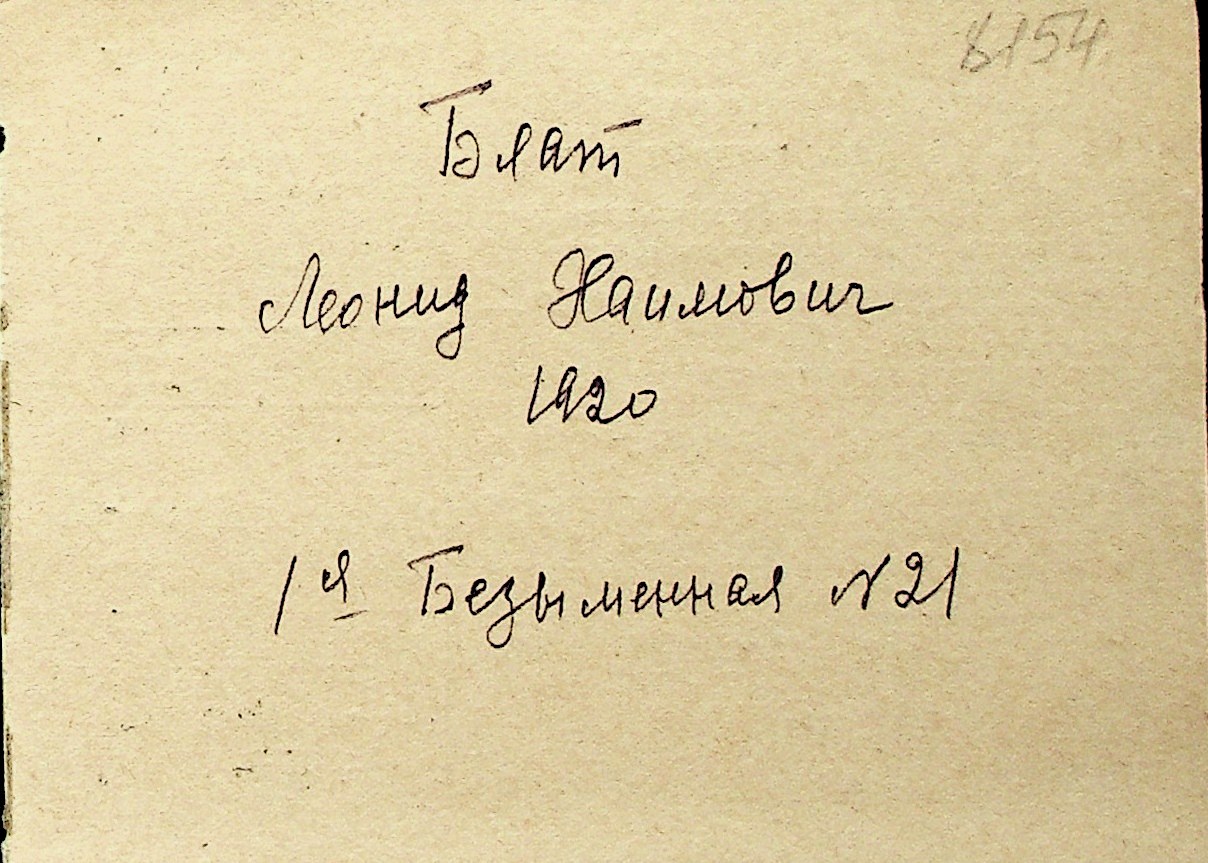 8154
Блат
Леонид Наимович
1920
1я Безыменная N21